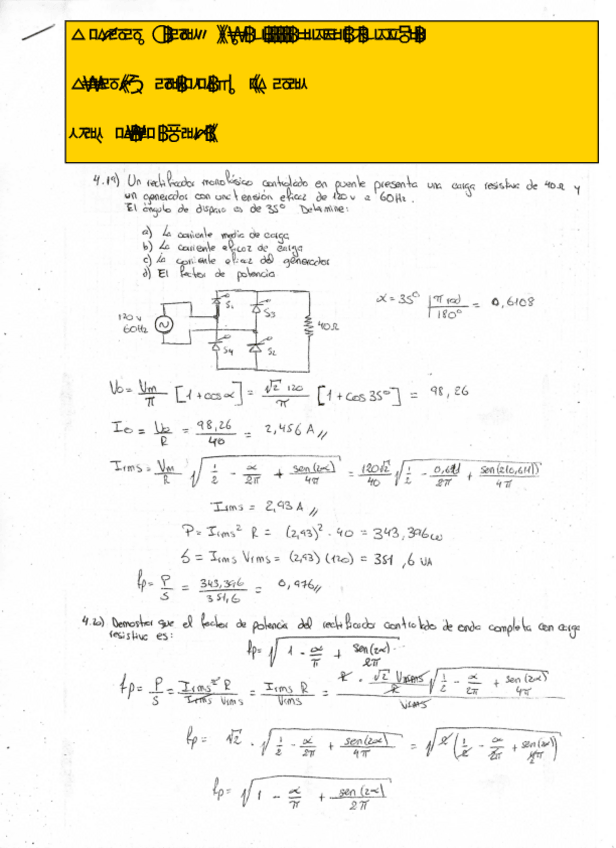 4.19) Un rectificador monofásico controlado en puente presenta una carga resistiva de 40Ω y
un generador con una tensión eficaz de 120 v a 60Hz.
El ángulo de disparo es de 35° Determine:
a) La corriente media de carga
b) La corriente eficaz de carga
c) La corriente eficaz del generador
d) El factor de potencia
120 v
60Hz
S1
S3
S4
S2
40Ω
α = 35° | π rad / 180° = 0,6108
Vo = Vm/π [1 + cos α] = √2 120/π [1 + cos 35°] = 98,26
Io = Vo/R = 98,26/40 = 2,456 A //
Irms = Vm/R √(1/2 - α/2π + sen(2α)/4π) = 120√2/40 √(1/2 - 0,611/2π + sen(2(0,611))/4π)
Irms = 2,93 A //
P = Irms² R = (2,93)² · 40 = 343,396 w
S = Irms Vrms = (2,93) (120) = 351,6 VA
fp = P/S = 343,396/351,6 = 0,976 //
4.20) Demostrar que el factor de potencia del rectificador controlado de onda completa con carga
resistiva es:
fp = √(1 - α/π + sen(2α)/2π).
fp = P/S = Irms² R/Irms Vrms = Irms R/Vrms = R · √2 Vrms/R √(1/2 - α/2π + sen(2α)/4π) / Vrms
fp = √2 · √(1/2 - α/2π + sen(2α)/4π) = √(2 (1/2 - α/2π + sen(2α)/4π))
fp = √(1 - α/π + sen(2α)/2π)